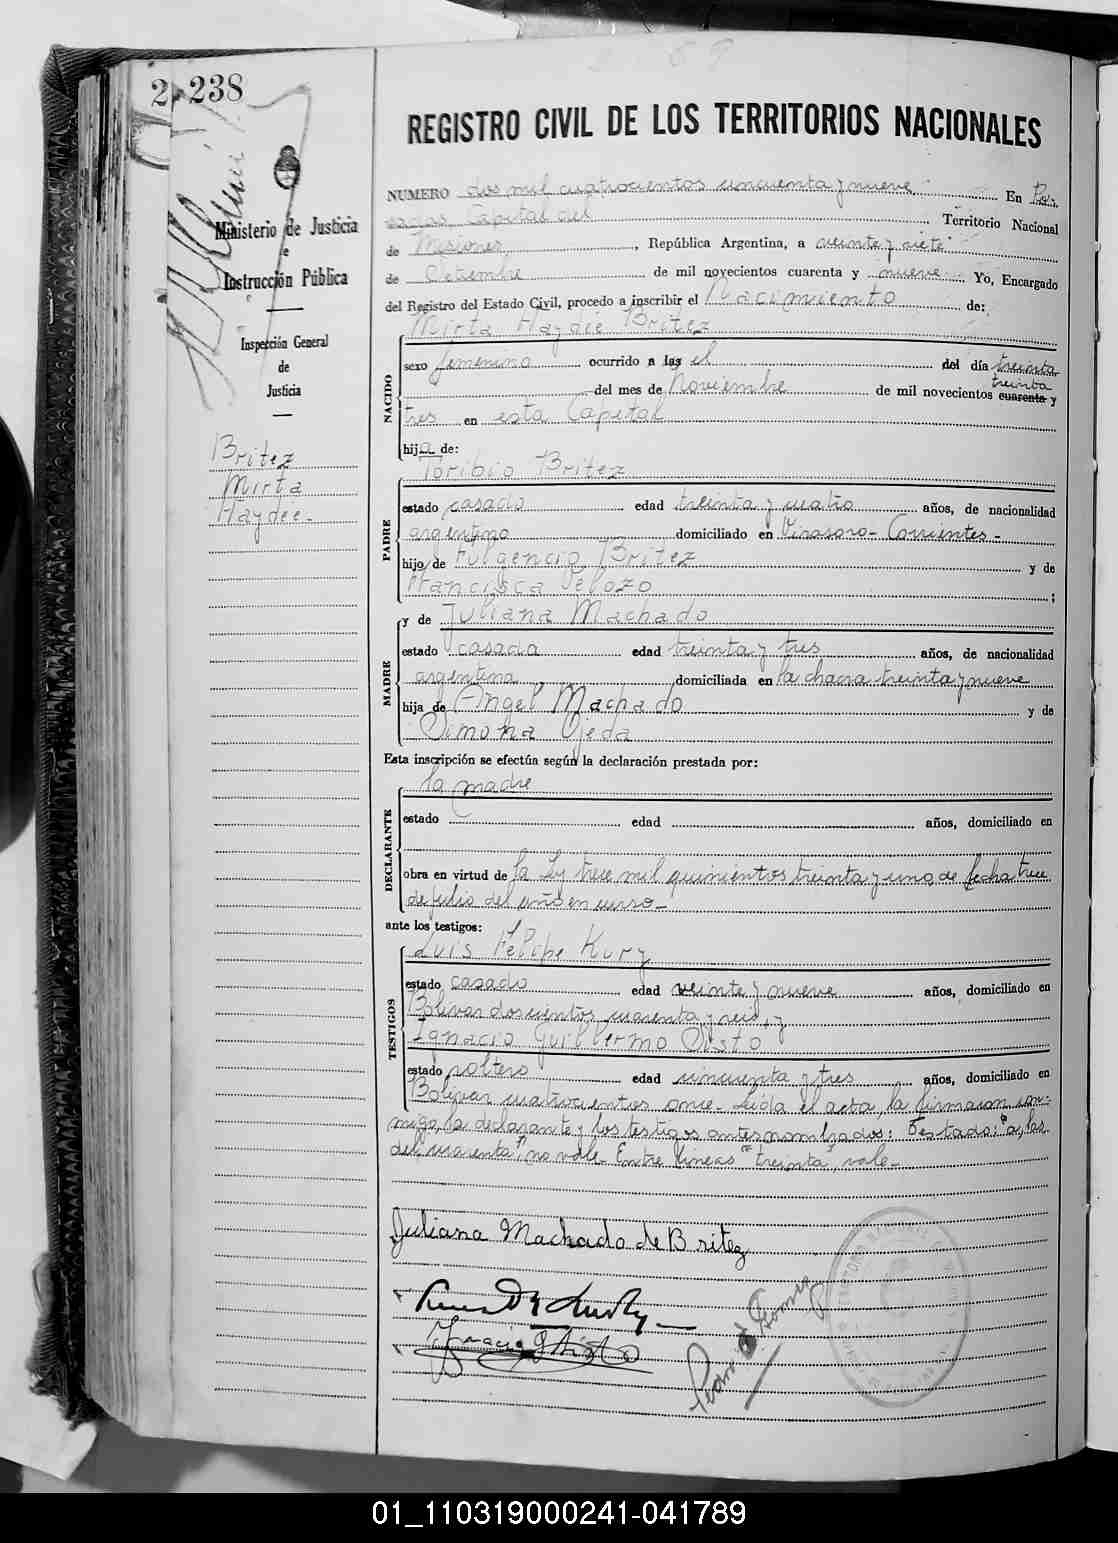 2 238
Ministerio de Justicia
e
Instrucción Pública
Inspección General
de
Justicia
Britez
Mirta
Haydée.-
REGISTRO CIVIL DE LOS TERRITORIOS NACIONALES
NUMERO dos mil cuatrocientos cincuenta y nueve En Po-
sadas, Capital del Territorio Nacional
de Misiones, República Argentina, a veinte y siete
de de mil novecientos cuarenta y nueve Yo, Encargado
del Registro del Estado Civil, procedo a inscribir el Nacimiento de:
Mirta Haydée Britez
NACIDO
sexo femenino ocurrido a las el del día treinta
del mes de Noviembre de mil novecientos cuarenta y treinta
tres en esta Capital
hija de:
PADRE
Toribio Britez
estado casado edad treinta y cuatro años, de nacionalidad
argentino domiciliado en Virasoro - Corrientes -
hijo de Fulgencio Britez y de
Francisca Pelozo ;
MADRE
y de Juliana Machado
estado casada edad treinta y tres años, de nacionalidad
argentina, domiciliada en la chacra treinta y nueve
hija de Angel Machado y de
Simona Ojeda
Esta inscripción se efectúa según la declaración prestada por:
DECLARANTE
la madre
estado edad años, domiciliado en
obra en virtud de la Ley trece mil quinientos treinta y uno, de fecha trece
de julio del año en curso -
ante los testigos:
TESTIGOS
Luis Felipe Kury
estado casado edad veinte y nueve años, domiciliado en
Bolivar doscientos cuarenta y seis, y
Ignacio Guillermo Sisto
estado soltero edad cincuenta y tres años, domiciliado en
Bolivar cuatrocientos once - Leida el acta, la firmaron con-
migo, la declarante y los testigos antes nombrados: Testado: "a, las
del, cuarenta", no vale - Entre líneas "treinta", vale -
Juliana Machado de Britez
Gomez
01_110319000241-041789